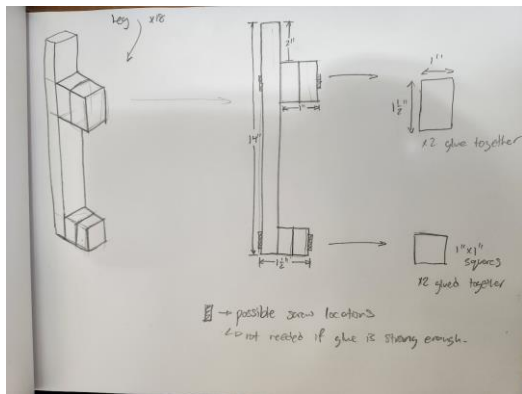 Leg x18
2"
1"
14"
1 1/2"
1"
1 1/2"
x2 glue together
1"x1"
squares
x2 glued together
→ possible screw locations
↳ not needed if glue is strong enough.